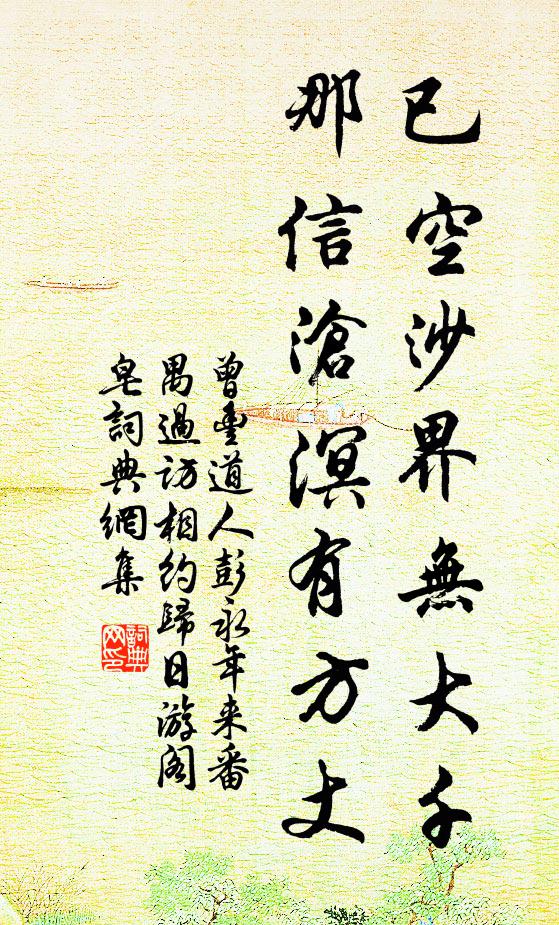 已空沙界無大千
那信滄溟有方丈
曾雲道人彭永年来番
禺過訪相約歸日游閣
皂詞典網集
詞典
网印